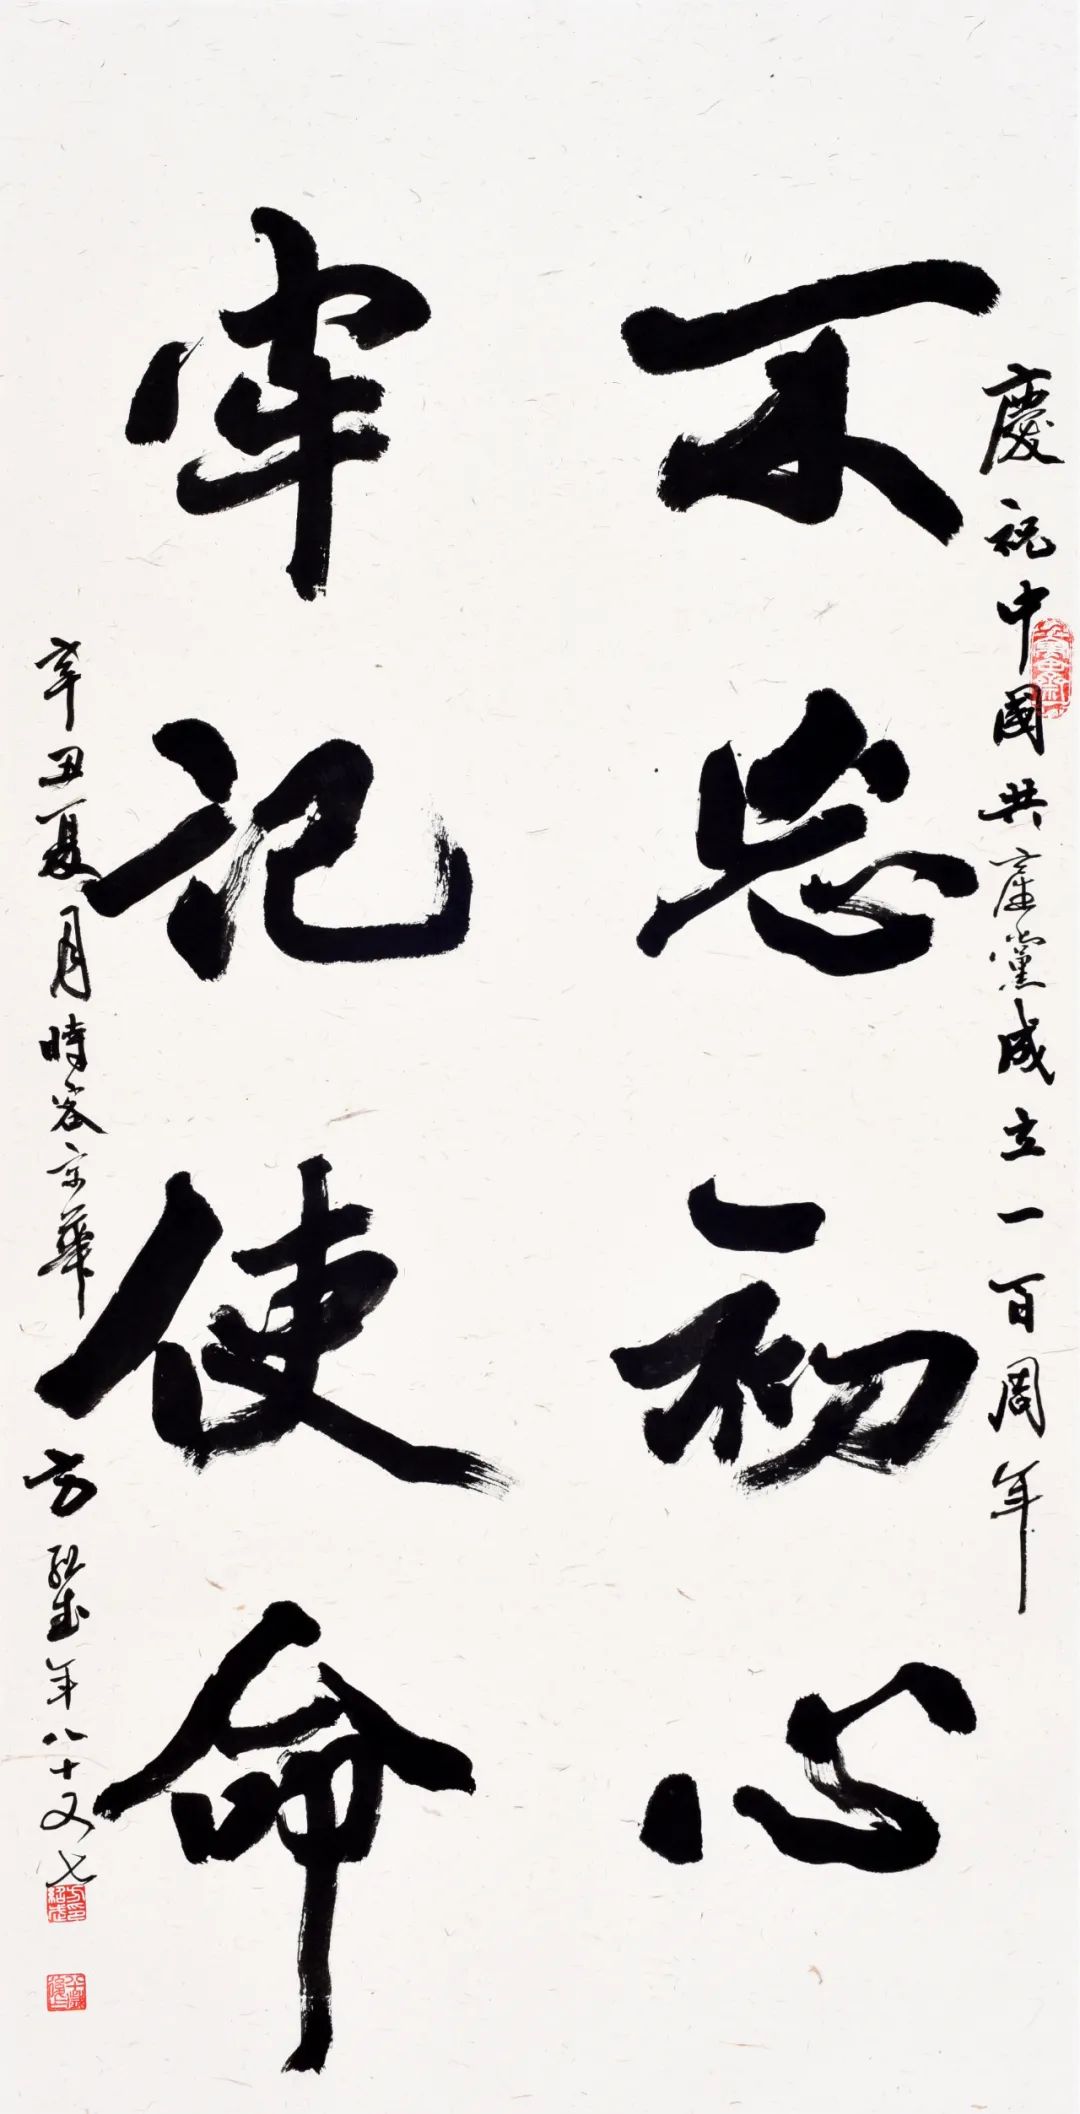 慶祝中國共產黨成立一百周年
不忘初心
牢記使命
辛丑夏月時客京華方紹武年八十又七